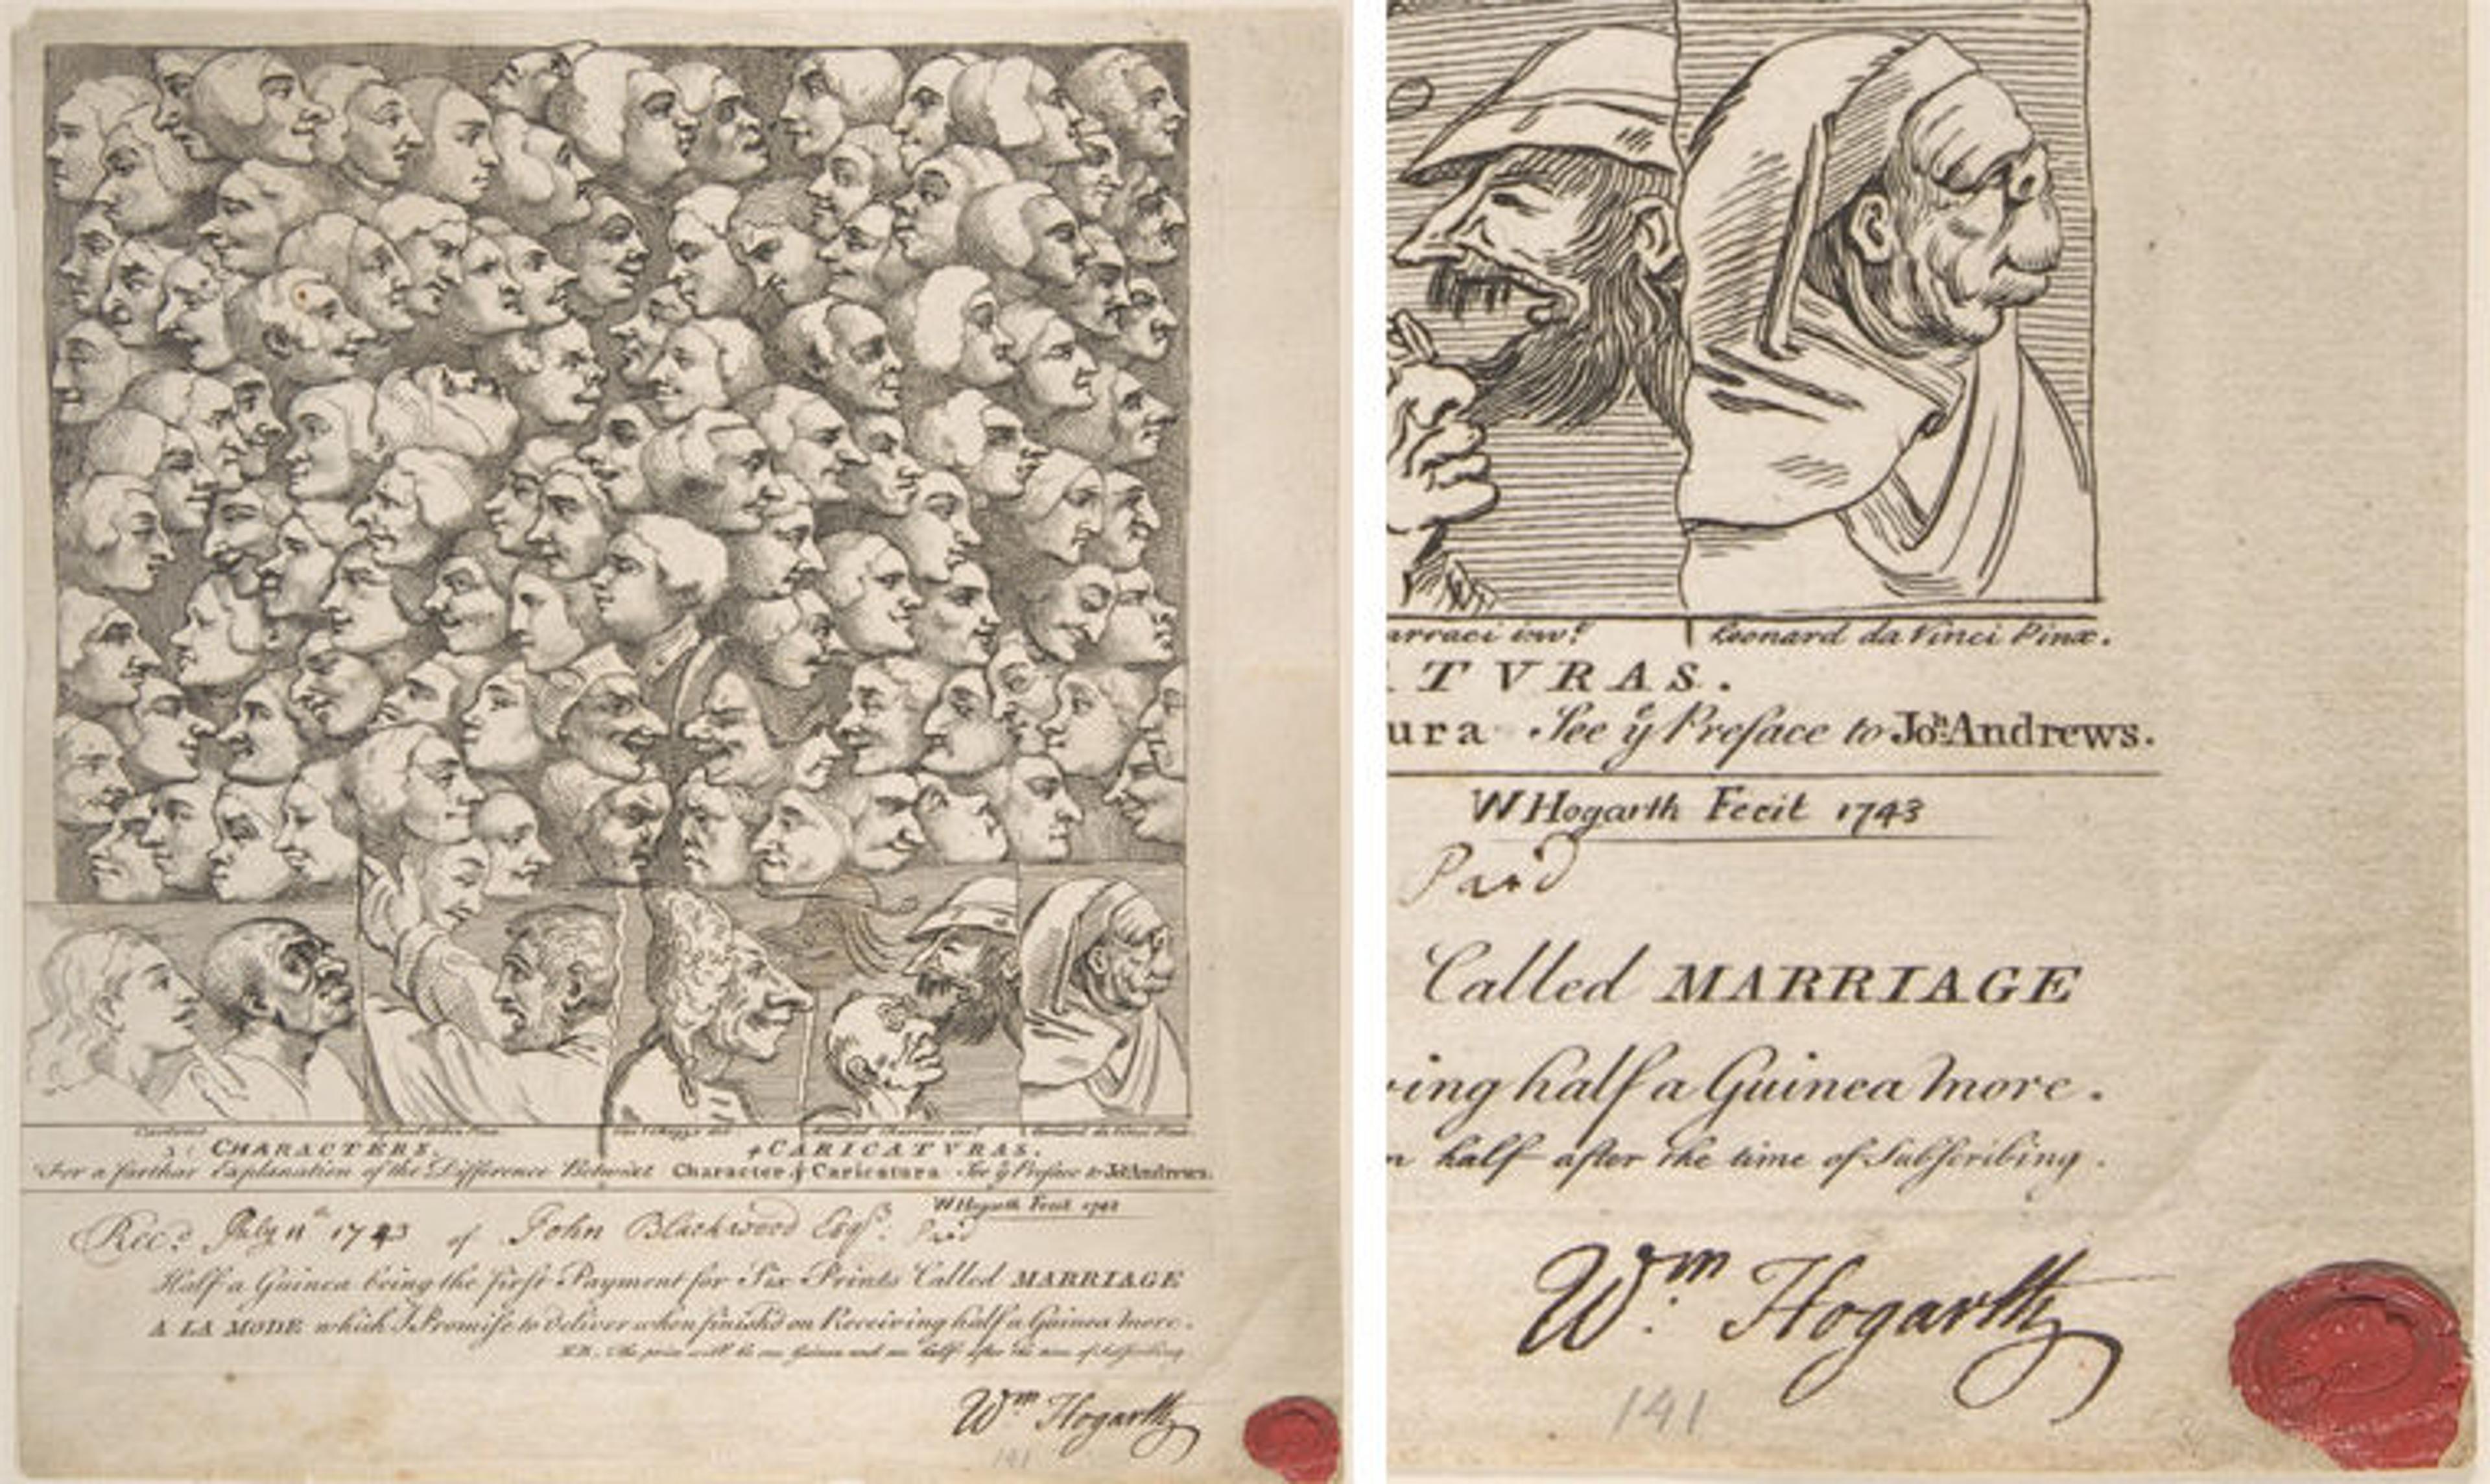 Cartons
CHARACTERS.
Leonard da Vinci Pinx.
CARICATVRAS.
For a farthar Explanation of the Difference Betwixt Character & Caricatura See yᵉ Preface to Joʰ. Andrews.
W Hogarth Fecit 1743
Rec.ᵈ July 11ᵗʰ 1743 of John Blackwood Esqʳ. Paid
Half a Guinea being the first Payment for Six Prints Called MARRIAGE
A LA MODE which I Promise to Deliver when finish'd on Receiving half a Guinea more.
N.B. The price will be one Guinea and an half after the time of Subscribing.
Wᵐ. Hogarth
141
arraci invᵗ
Leonard da Vinci Pinx.
ATVRAS.
ura See yᵉ Preface to Joʰ. Andrews.
W Hogarth Fecit 1743
Paid
Called MARRIAGE
ving half a Guinea more.
n half after the time of Subscribing.
Wᵐ. Hogarth
141